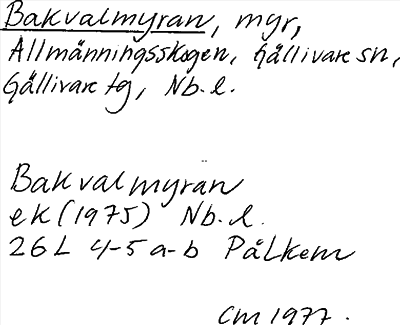 Bakvalmyran, myr,
Allmänningsskogen, Gällivare sn,
Gällivare tg, Nb. l.
Bakvalmyran
ek (1975) Nb. l.
26 L 4-5 a-b Pålkem
CM 1977.